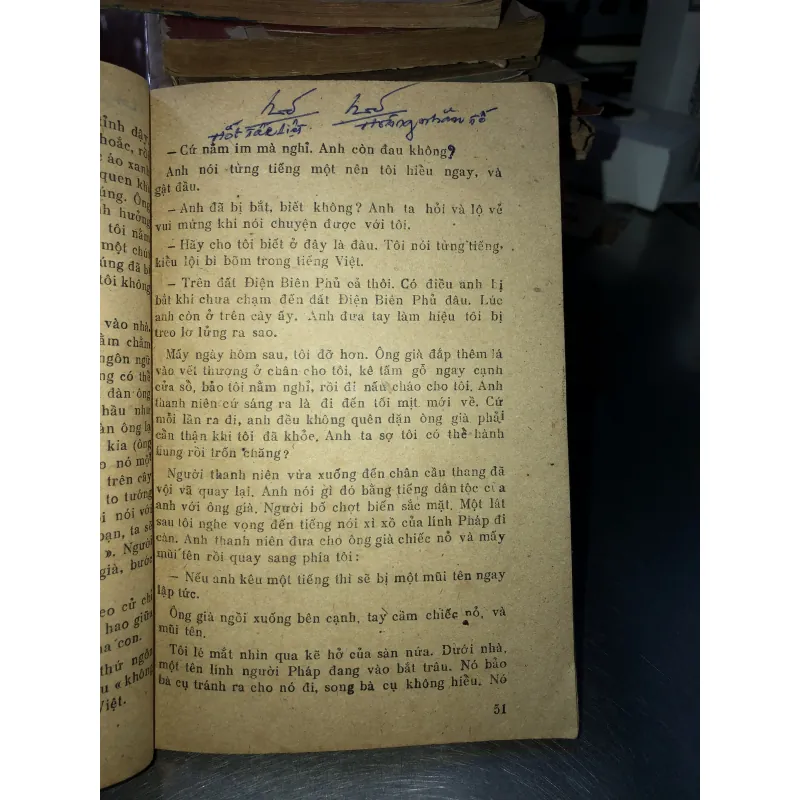 tỉnh dậy
hoắc, rồi
c áo xanh
quen khi
úng. Ông
nh hưởng
tôi nằm
một chút
úng đã bị
tôi không
vào nhà.
ằm chằm
ngôn ngữ
ng có thể
đàn ông
hầu như
àn ông lạ
kia (ông
o nó một
trên cây
to tướng
i nói với
bạn, ta sẽ
». Người
già, bước
eo cử chỉ
hao giữa
na con.
thứ ngôn
u « không
Việt.
hố hố
Hốt Tất Liệt.
— Cứ nằm im mà nghỉ. Anh còn đau không?
Anh nói từng tiếng một nên tôi hiểu ngay, và
gật đầu.
— Anh đã bị bắt, biết không? Anh ta hỏi và lộ vẻ
vui mừng khi nói chuyện được với tôi.
— Hãy cho tôi biết ở đây là đâu. Tôi nói từng tiếng,
kiểu lội bì bõm trong tiếng Việt.
— Trên đất Điện Biên Phủ cả thôi. Có điều anh bị
bắt khi chưa chạm đến đất Điện Biên Phủ đâu. Lúc
anh còn ở trên cây ấy. Anh đưa tay làm hiệu tôi bị
treo lơ lửng ra sao.
Mấy ngày hôm sau, tôi đỡ hơn. Ông già đắp thêm lá
vào vết thương ở chân cho tôi, kê tấm gỗ ngay cạnh
cửa sổ, bảo tôi nằm nghỉ, rồi đi nấu cháo cho tôi. Anh
thanh niên cứ sáng ra là đi đến tối mịt mới về. Cứ
mỗi lần ra đi, anh đều không quên dặn ông già phải
cẩn thận khi tôi đã khỏe. Anh ta sợ tôi có thể hành
hung rồi trốn chăng?
Người thanh niên vừa xuống đến chân cầu thang đã
vội vã quay lại. Anh nói gì đó bằng tiếng dân tộc của
anh với ông già. Người bố chợt biến sắc mặt. Một lát
sau tôi nghe vọng đến tiếng nói xì xồ của lính Pháp đi
càn. Anh thanh niên đưa cho ông già chiếc nỏ và mấy
mũi tên rồi quay sang phía tôi :
— Nếu anh kêu một tiếng thì sẽ bị một mũi tên ngay
lập tức.
Ông già ngồi xuống bên cạnh, tay cầm chiếc nỏ, và
mũi tên.
Tôi lé mắt nhìn qua kẽ hở của sàn nứa. Dưới nhà,
một tên lính người Pháp đang vào bắt trâu. Nó bảo
bà cụ tránh ra cho nó đi, song bà cụ không hiểu. Nó
51